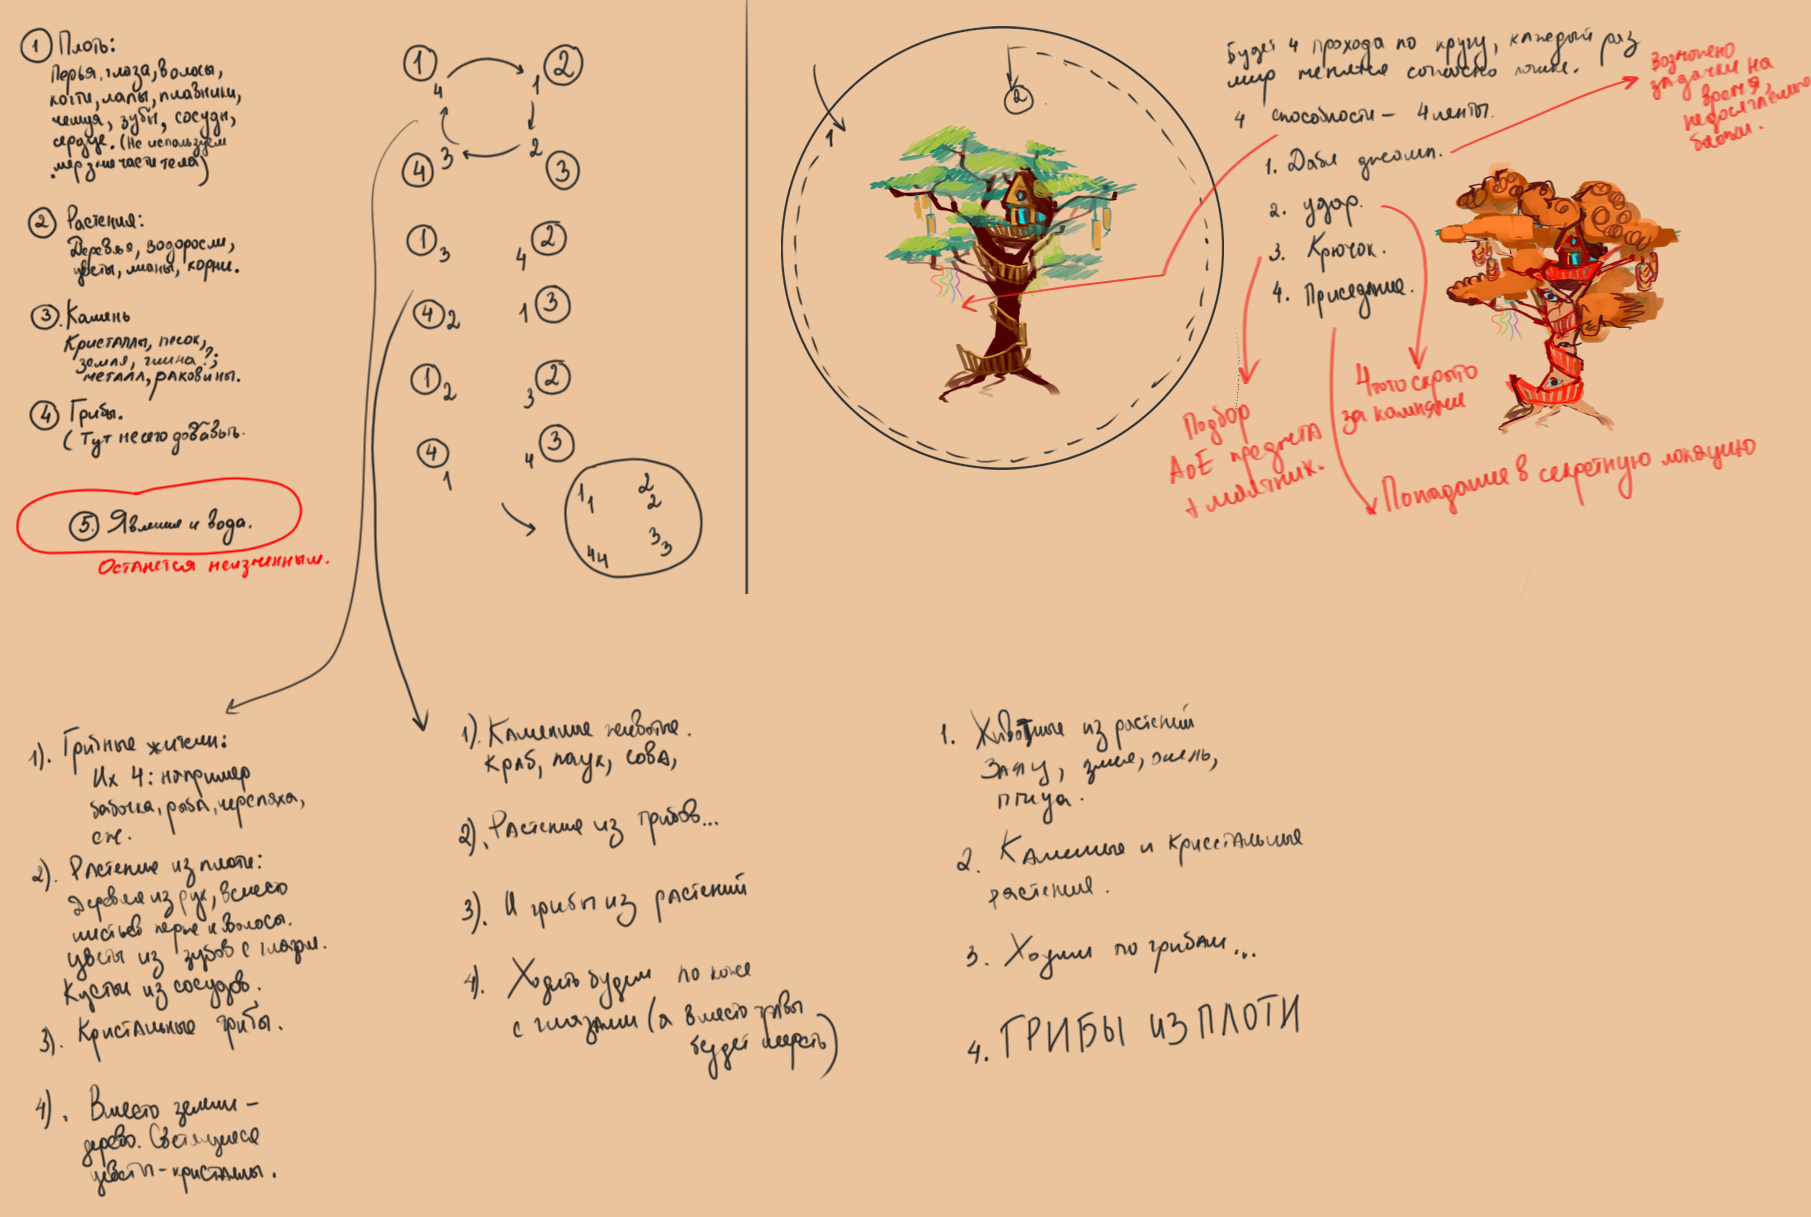 1 Плоть:
Перья, глаза, волосы,
когти, лапы, плавники,
чешуя, зубы, сосуды,
сердце. (Не используем
мерзкие части тела)
2 Растения:
Деревья, водоросли,
цветы, лианы, корни.
3. Камень
Кристаллы, песок,
земля, глина?;
металл, раковины.
4 Грибы.
(Тут нечего добавить.
5. Явления и вода.
Останется неизменным.
1 2
4 1
3 2
4 3
1 3 4 2
4 2 1 3
1 2 3 2
4 1 4 3
1 1 2 2
4 4 3 3
1
2
Будет 4 прохода по кругу, каждый раз
мир меняется согласно логике.
4 способности - 4 ленты.
1. Дабл джамп.
2. удар.
3. Крючок.
4. Приседание.
Возможно
задачки на
время,
недосягаемые
Подбор
АоЕ предмета
+ маятник.
Что-то скрыто
за камнями
Попадание в секретную локацию
1). Грибные жители:
Их 4: например
бабочка, рыба, черепаха,
2). Растения из плоти:
Деревья из рук, вместо
листьев перья и волосы.
Цветы из зубов с глазами.
Кусты из сосудов.
3). Кристальные грибы.
4). Вместо земли -
дерево. Светящиеся
цветы - кристаллы.
1). Каменные животные.
Краб, паук, сова,
2). Растения из грибов...
3). И грибы из растений
4). Ходить будем по коже
с глазами (а вместо травы
будет шерсть)
1. Животные из растений
Заяц, змея, олень,
птица.
2. Каменные и кристальные
растения.
3. Ходим по грибам...
4. ГРИБЫ ИЗ ПЛОТИ